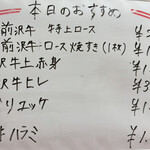 本日のおすすめ
前沢牛 特上ロース ¥2
前沢牛ロース焼き(1枚) ¥1
沢牛上赤身 ¥1
沢牛ヒレ ¥3
ユッケ ¥1
牛ハラミ ¥1